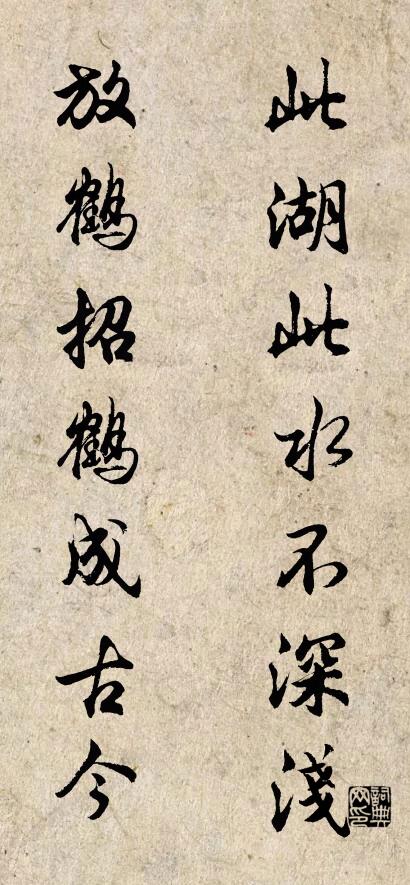 此湖此水不深淺
放鶴招鶴成古今
詞典網印